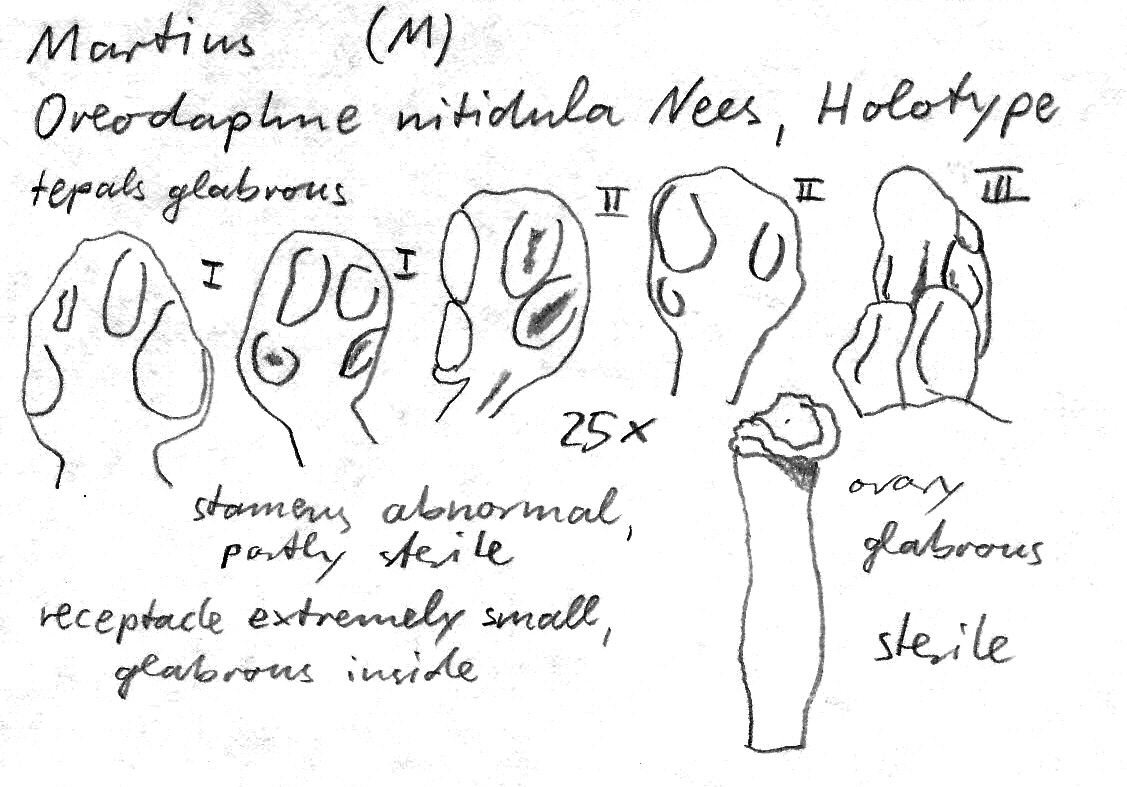 Martius (M)
Oreodaphne nitidula Nees, Holotype
tepals glabrous
I
I
II
II
III
25x
stamens abnormal,
partly sterile
ovary
glabrous
receptacle extremely small,
glabrous inside
sterile